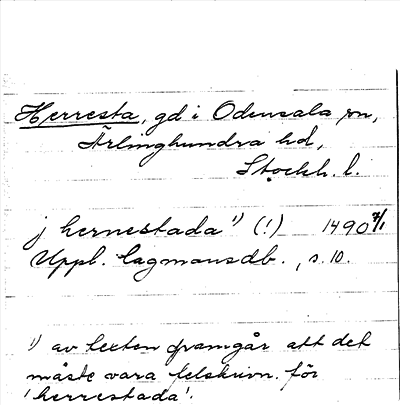 Herresta, gd i Odensala sn,
Ärlinghundra hd,
Stockh. l.
j hernestada¹⁾ (!) 1490 7/1
Uppl. lagmansdb., s. 10.
¹⁾ av texten framgår att det
måste vara felskrivn. för
'herrestada'.